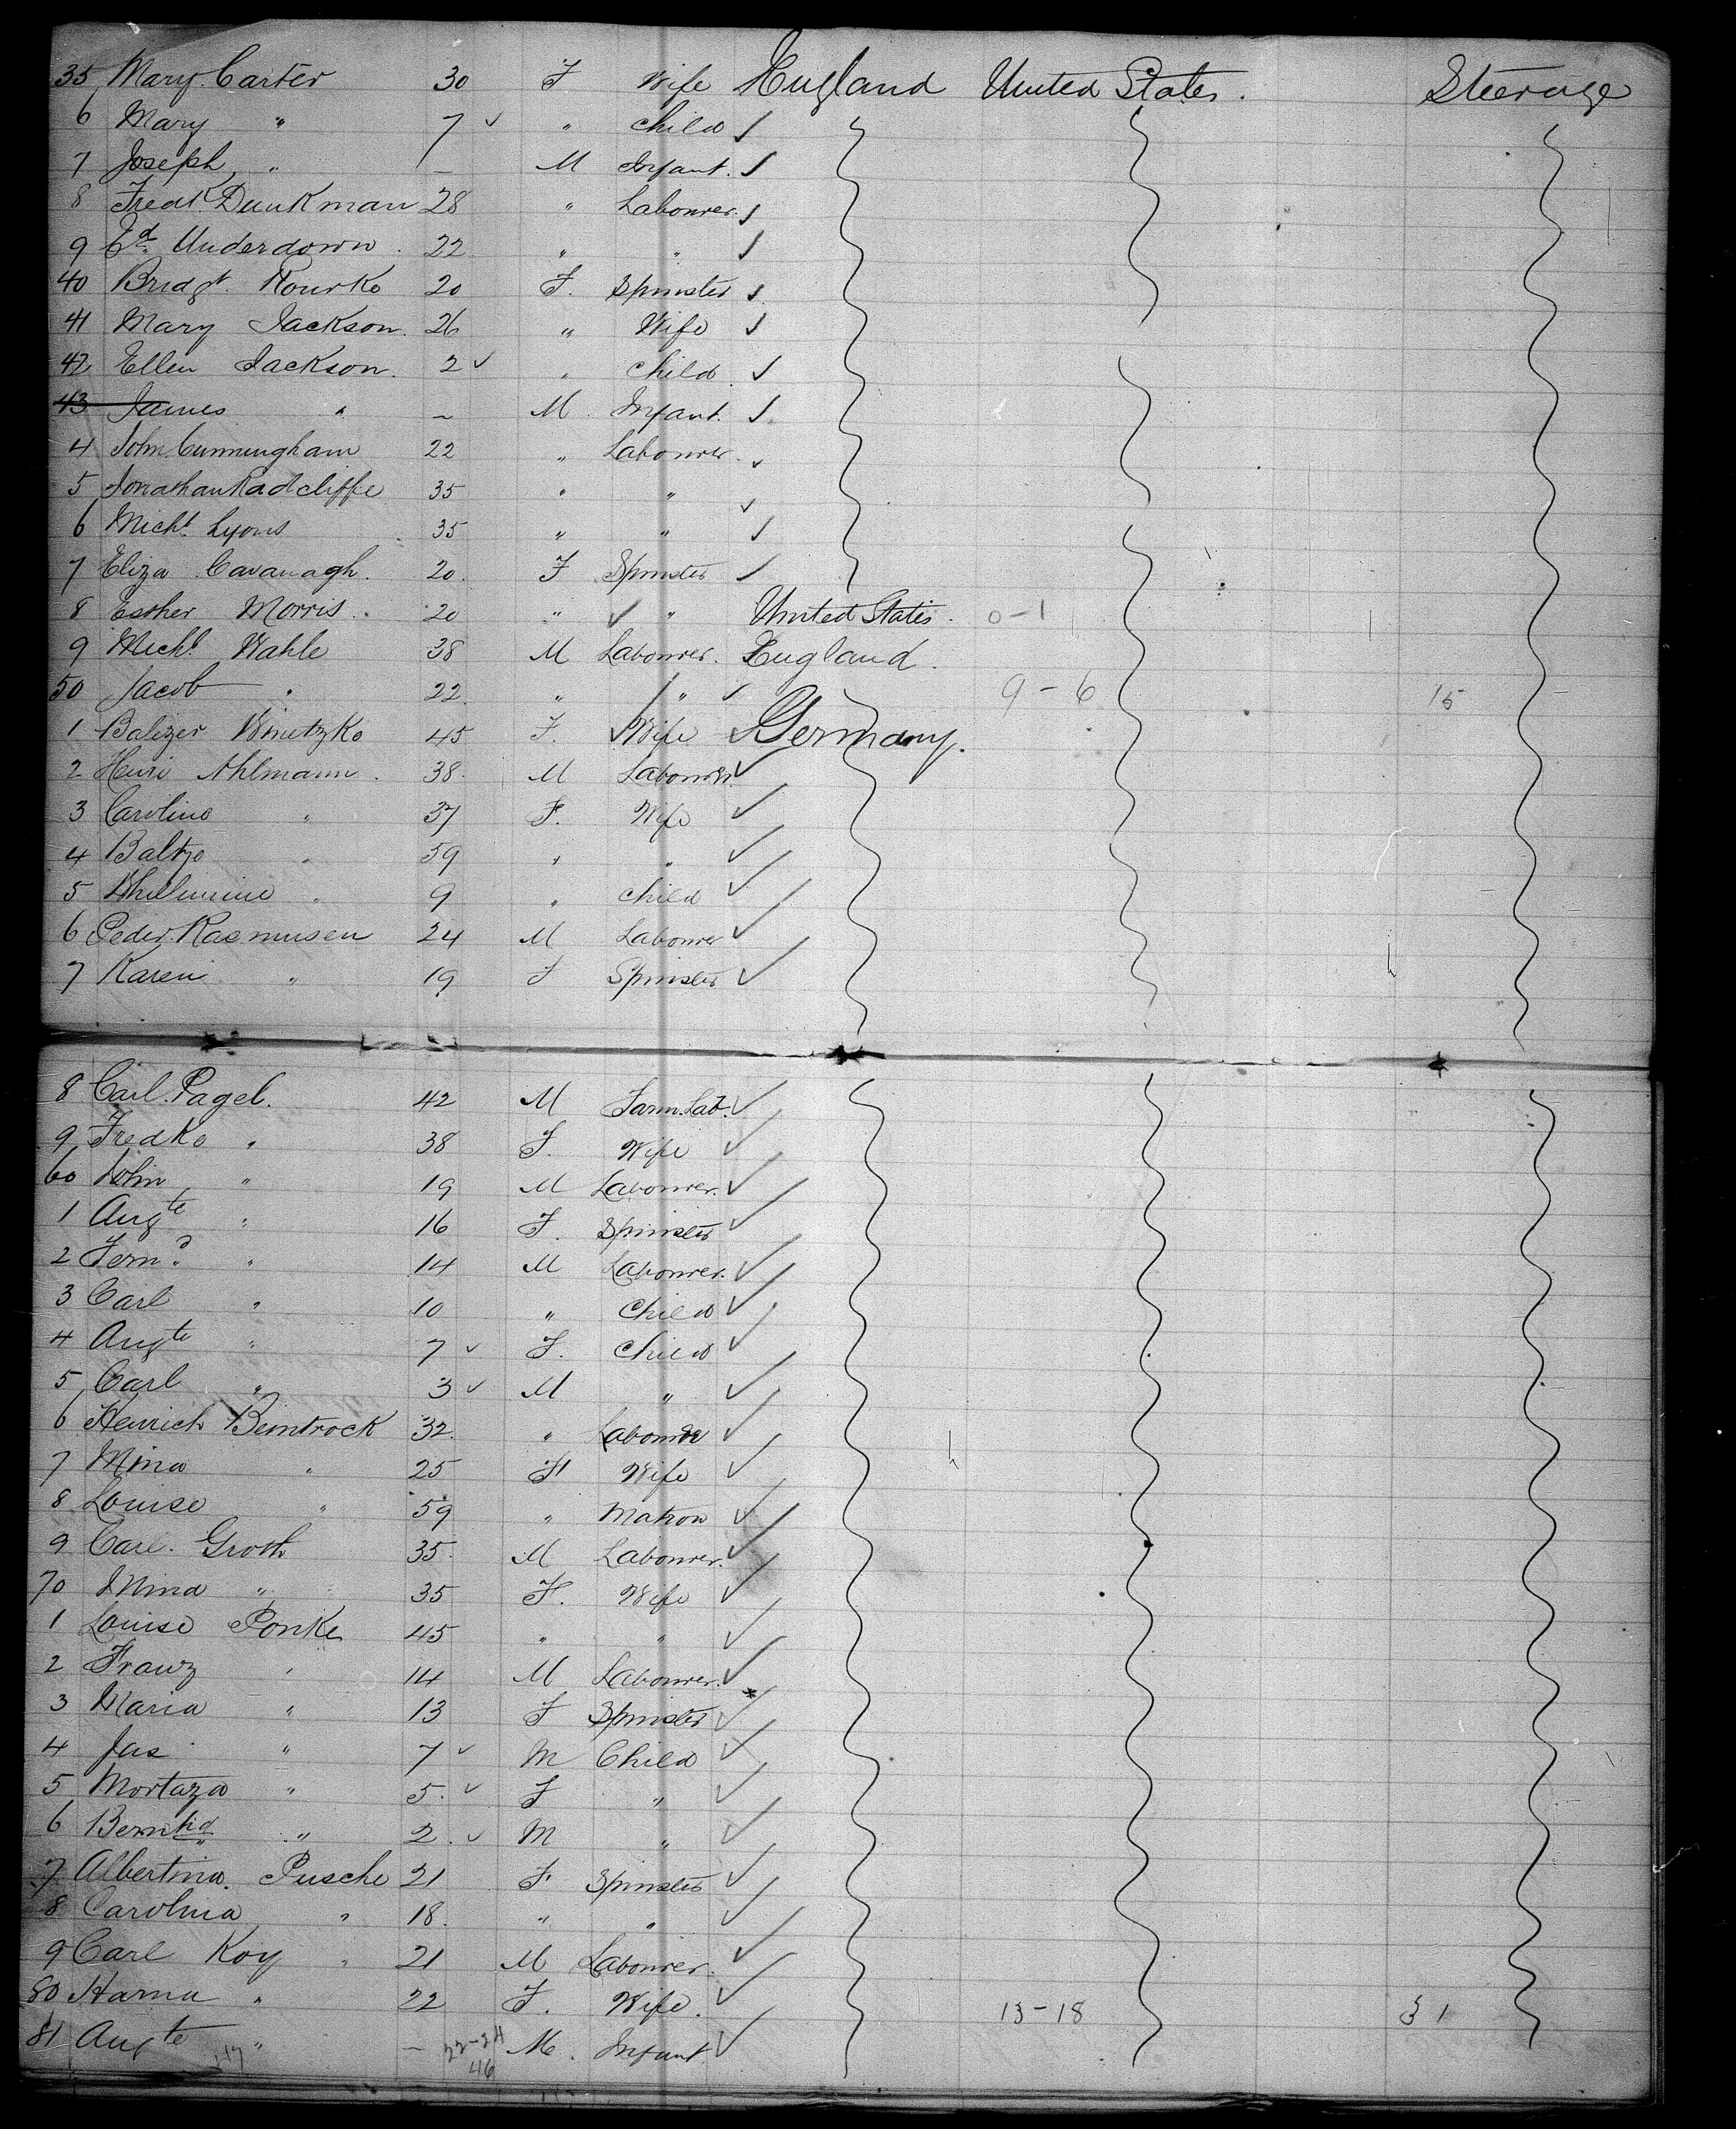 35 Mary Carter 30 F Wife England United States. Steerage
6 Mary " 7 " Child
7 Joseph " – M Infant.
8 Fredk. Dunkman 28 " Labourer.
9 Ed. Underdown. 22 " "
40 Bridgt. Rourke 20 F. Spinster
41 Mary Jackson. 26 " Wife
42 Ellen Jackson. 2 " Child
43 James " – M. Infant.
4 John Cunningham 22 " Labourer.
5 Jonathan Radcliffe 35 " "
6 Michl. Lyons 35 " "
7 Eliza Cavanagh. 20. F Spinster
8 Esther Morris. 20 " " United States. 0-1
9 Michl. Wahle 38 M Labourer. England.
50 Jacob " 22. " " 9-6 15
1 Balizer Winetzko 45 F. Wife Germany.
2 Henri Ahlmann. 38. M Labourer.
3 Caroline " 37 F. Wife
4 Baltzo " 59 " "
5 Whilemine " 9 " Child
6 Peder Rasmusen 24 M Labourer
7 Karen " 19 F Spinster
8 Carl. Pagel. 42 M Farm. Lab.
9 Fredke " 38 F. Wife
60 John " 19 M Labourer.
1 Augte " 16 F. Spinster
2 Fernd. " 14 M Labourer.
3 Carl " 10 " Child
4 Augte " 7 F. Child
5 Carl " 3 M "
6 Heinrich Beintrock 32. " Labourer
7 Mina " 25 F Wife
8 Louise " 59 " Matron
9 Carl. Groth 35. M Labourer.
70 Mina " 35 F. Wife
1 Louise Ponke 45 " "
2 Franz " 14 M Labourer.
3 Maria " 13 F Spinster
4 Jas " 7 M Child
5 Mortaza " 5. F "
6 Bernhd " 2. M "
7 Albertina. Pusche 21 F. Spinster
8 Carolina " 18. " "
9 Carl Koy " 21 M Labourer.
80 Hanna " 22 F. Wife. 13-18 31
81 Augte " – 22-24 M. Infant
117 46